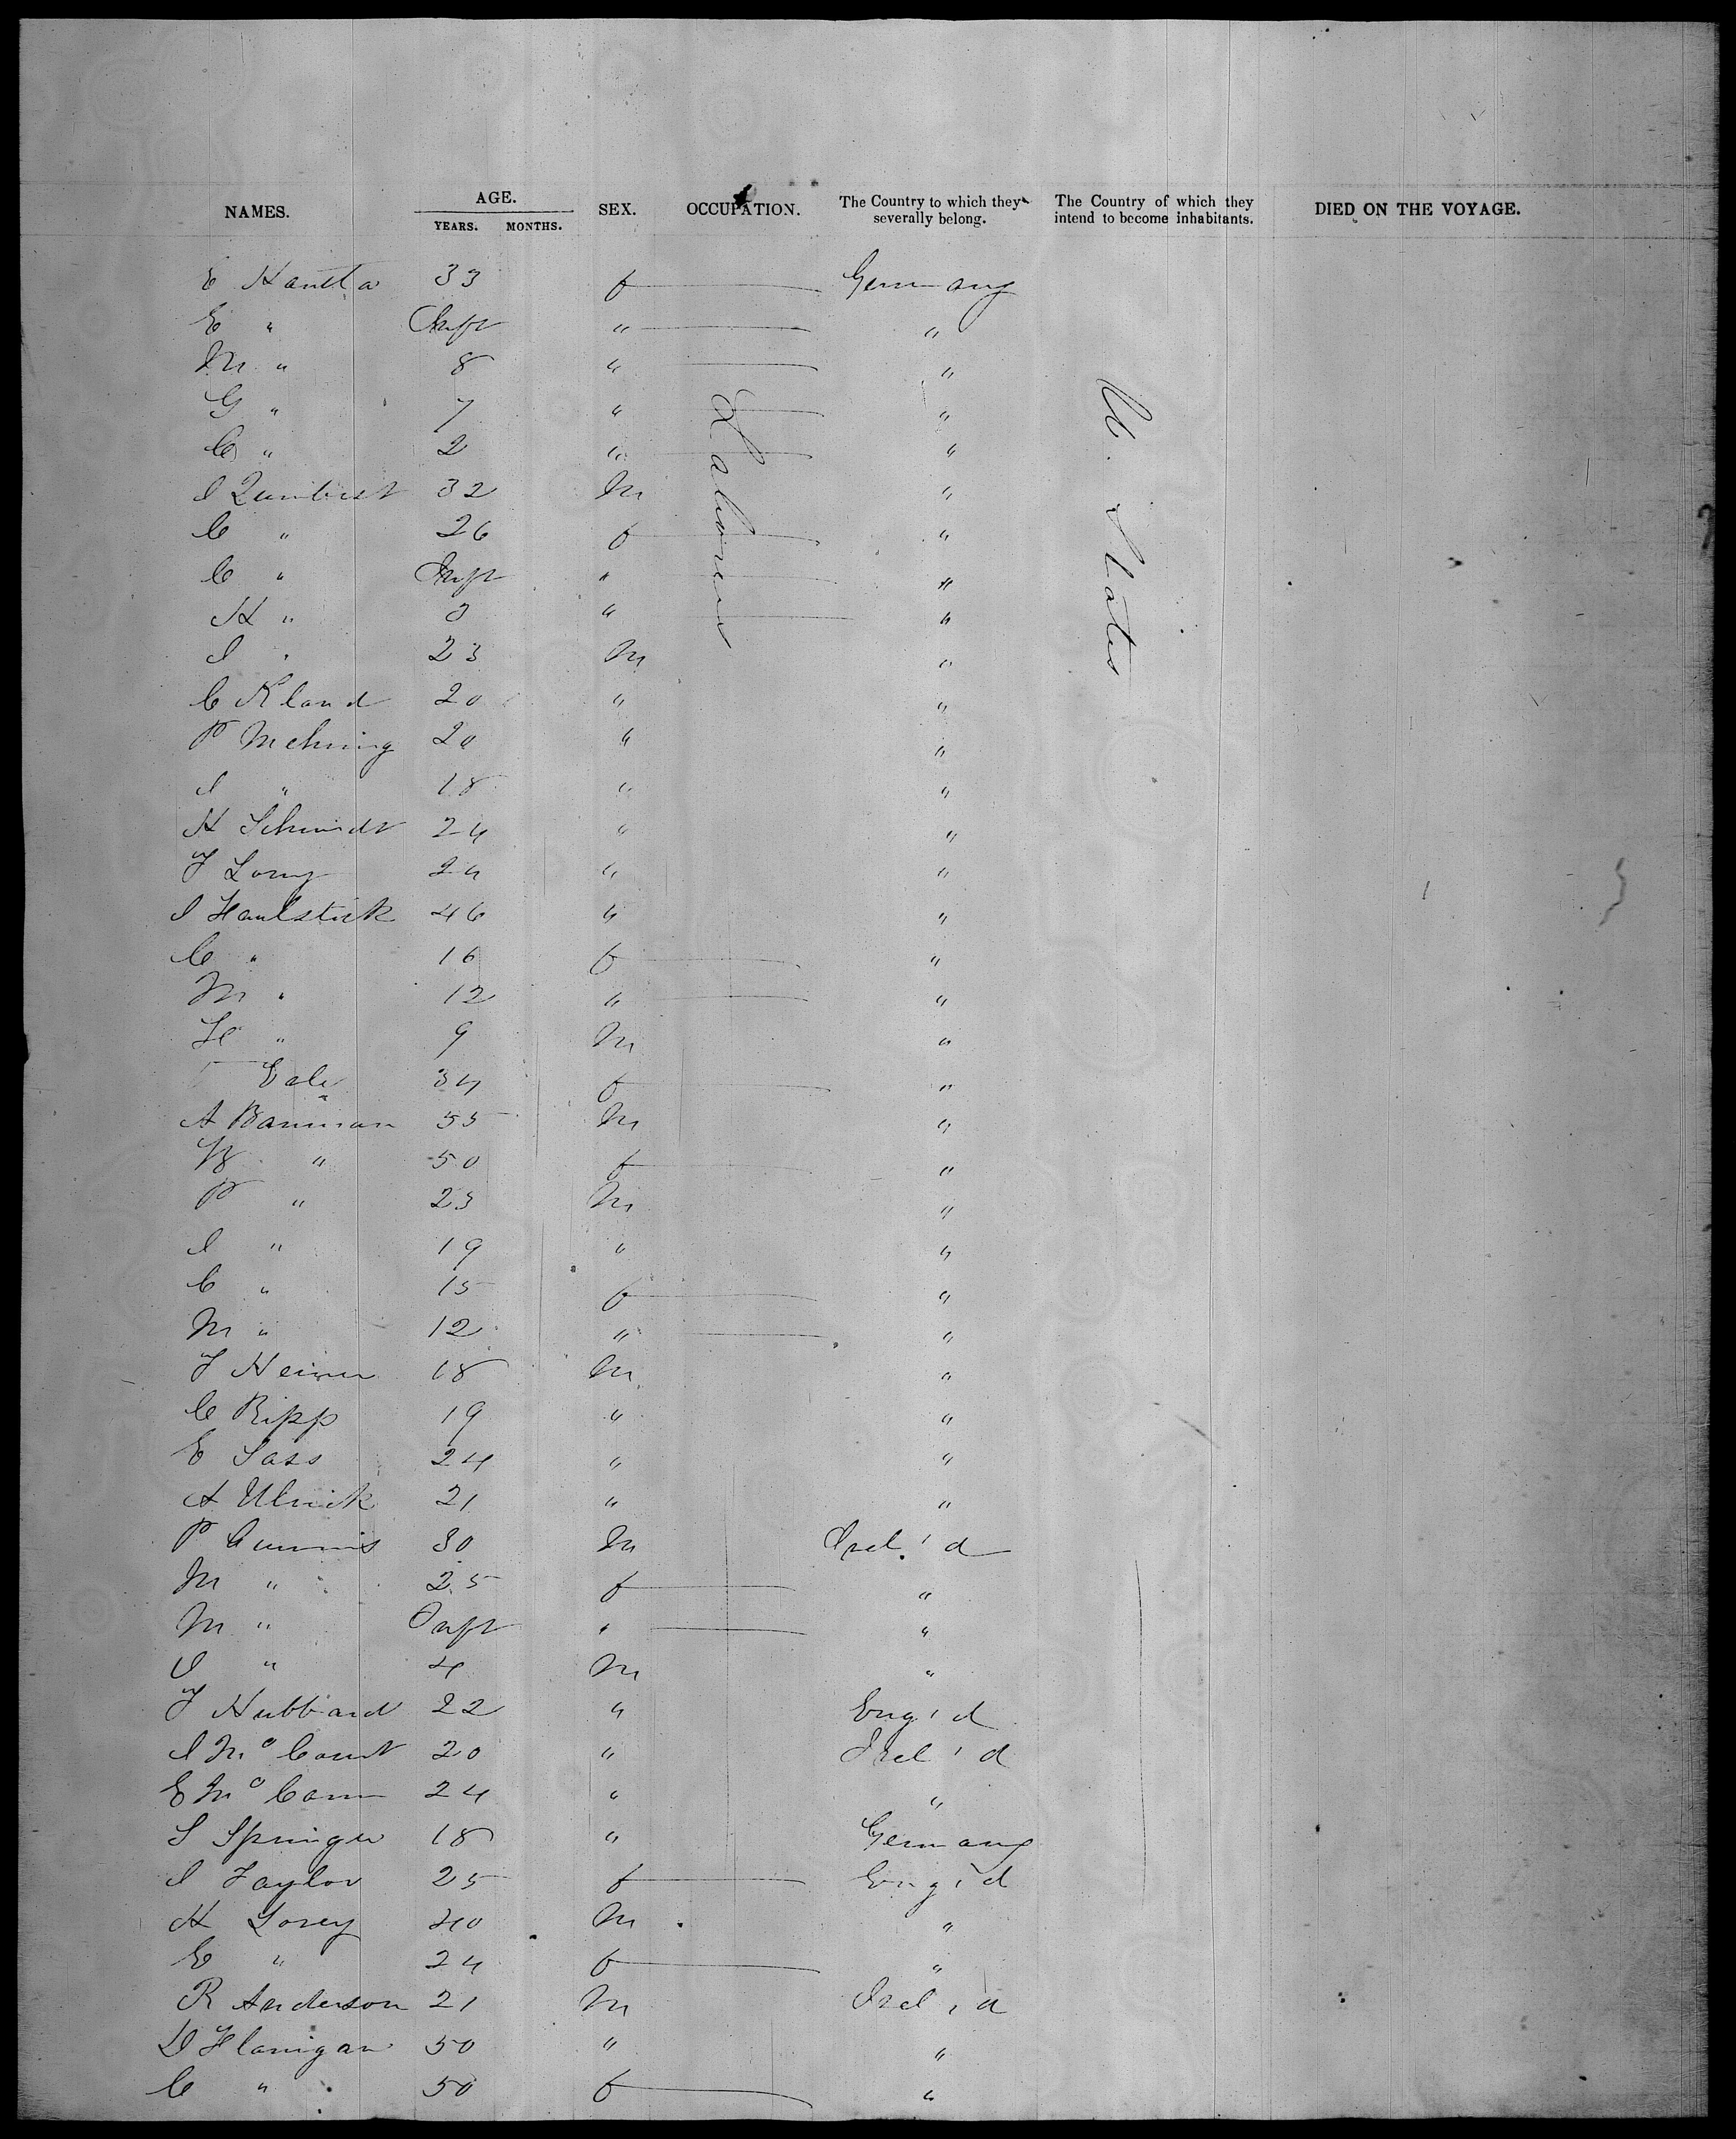 NAMES. AGE. YEARS. MONTHS. SEX. OCCUPATION. The Country to which they severally belong. The Country of which they intend to become inhabitants. DIED ON THE VOYAGE.
E Hantta 33 f Germany
E " Inft " "
M " 8 " "
G " 7 " "
C " 2 " "
I Quinbist 32 M "
C " 26 f "
C " Inft " "
H " 3 " "
I " 23 M "
C Kland 20 " "
P Mehring 20 " "
I " 18 " "
H Schmidt 24 " "
F Lorny 24 " "
I Haulstick 46 " "
C " 16 f "
M " 12 " "
H " 9 M "
34 f "
A Bauman 55 M "
" 50 f "
P " 23 M "
I " 19 " "
C " 15 f "
M " 12 " "
F Heiner 18 M "
C Ripp 19 " "
E Sass 24 " "
A Ulrick 21 " "
P Cummis 30 M Irel'd
M " 25 f "
M " Inft " "
I " 4 M "
F Hubbard 22 " Eng'd
I McCourt 20 " Irel'd
E McCann 24 " "
S Springer 18 " Germany
I Taylor 25 f Eng'd
H Lorey 40 M "
E " 24 f "
R Anderson 21 M Irel'd
D Flanigan 50 " "
C " 50 f "
Laborers
U. States